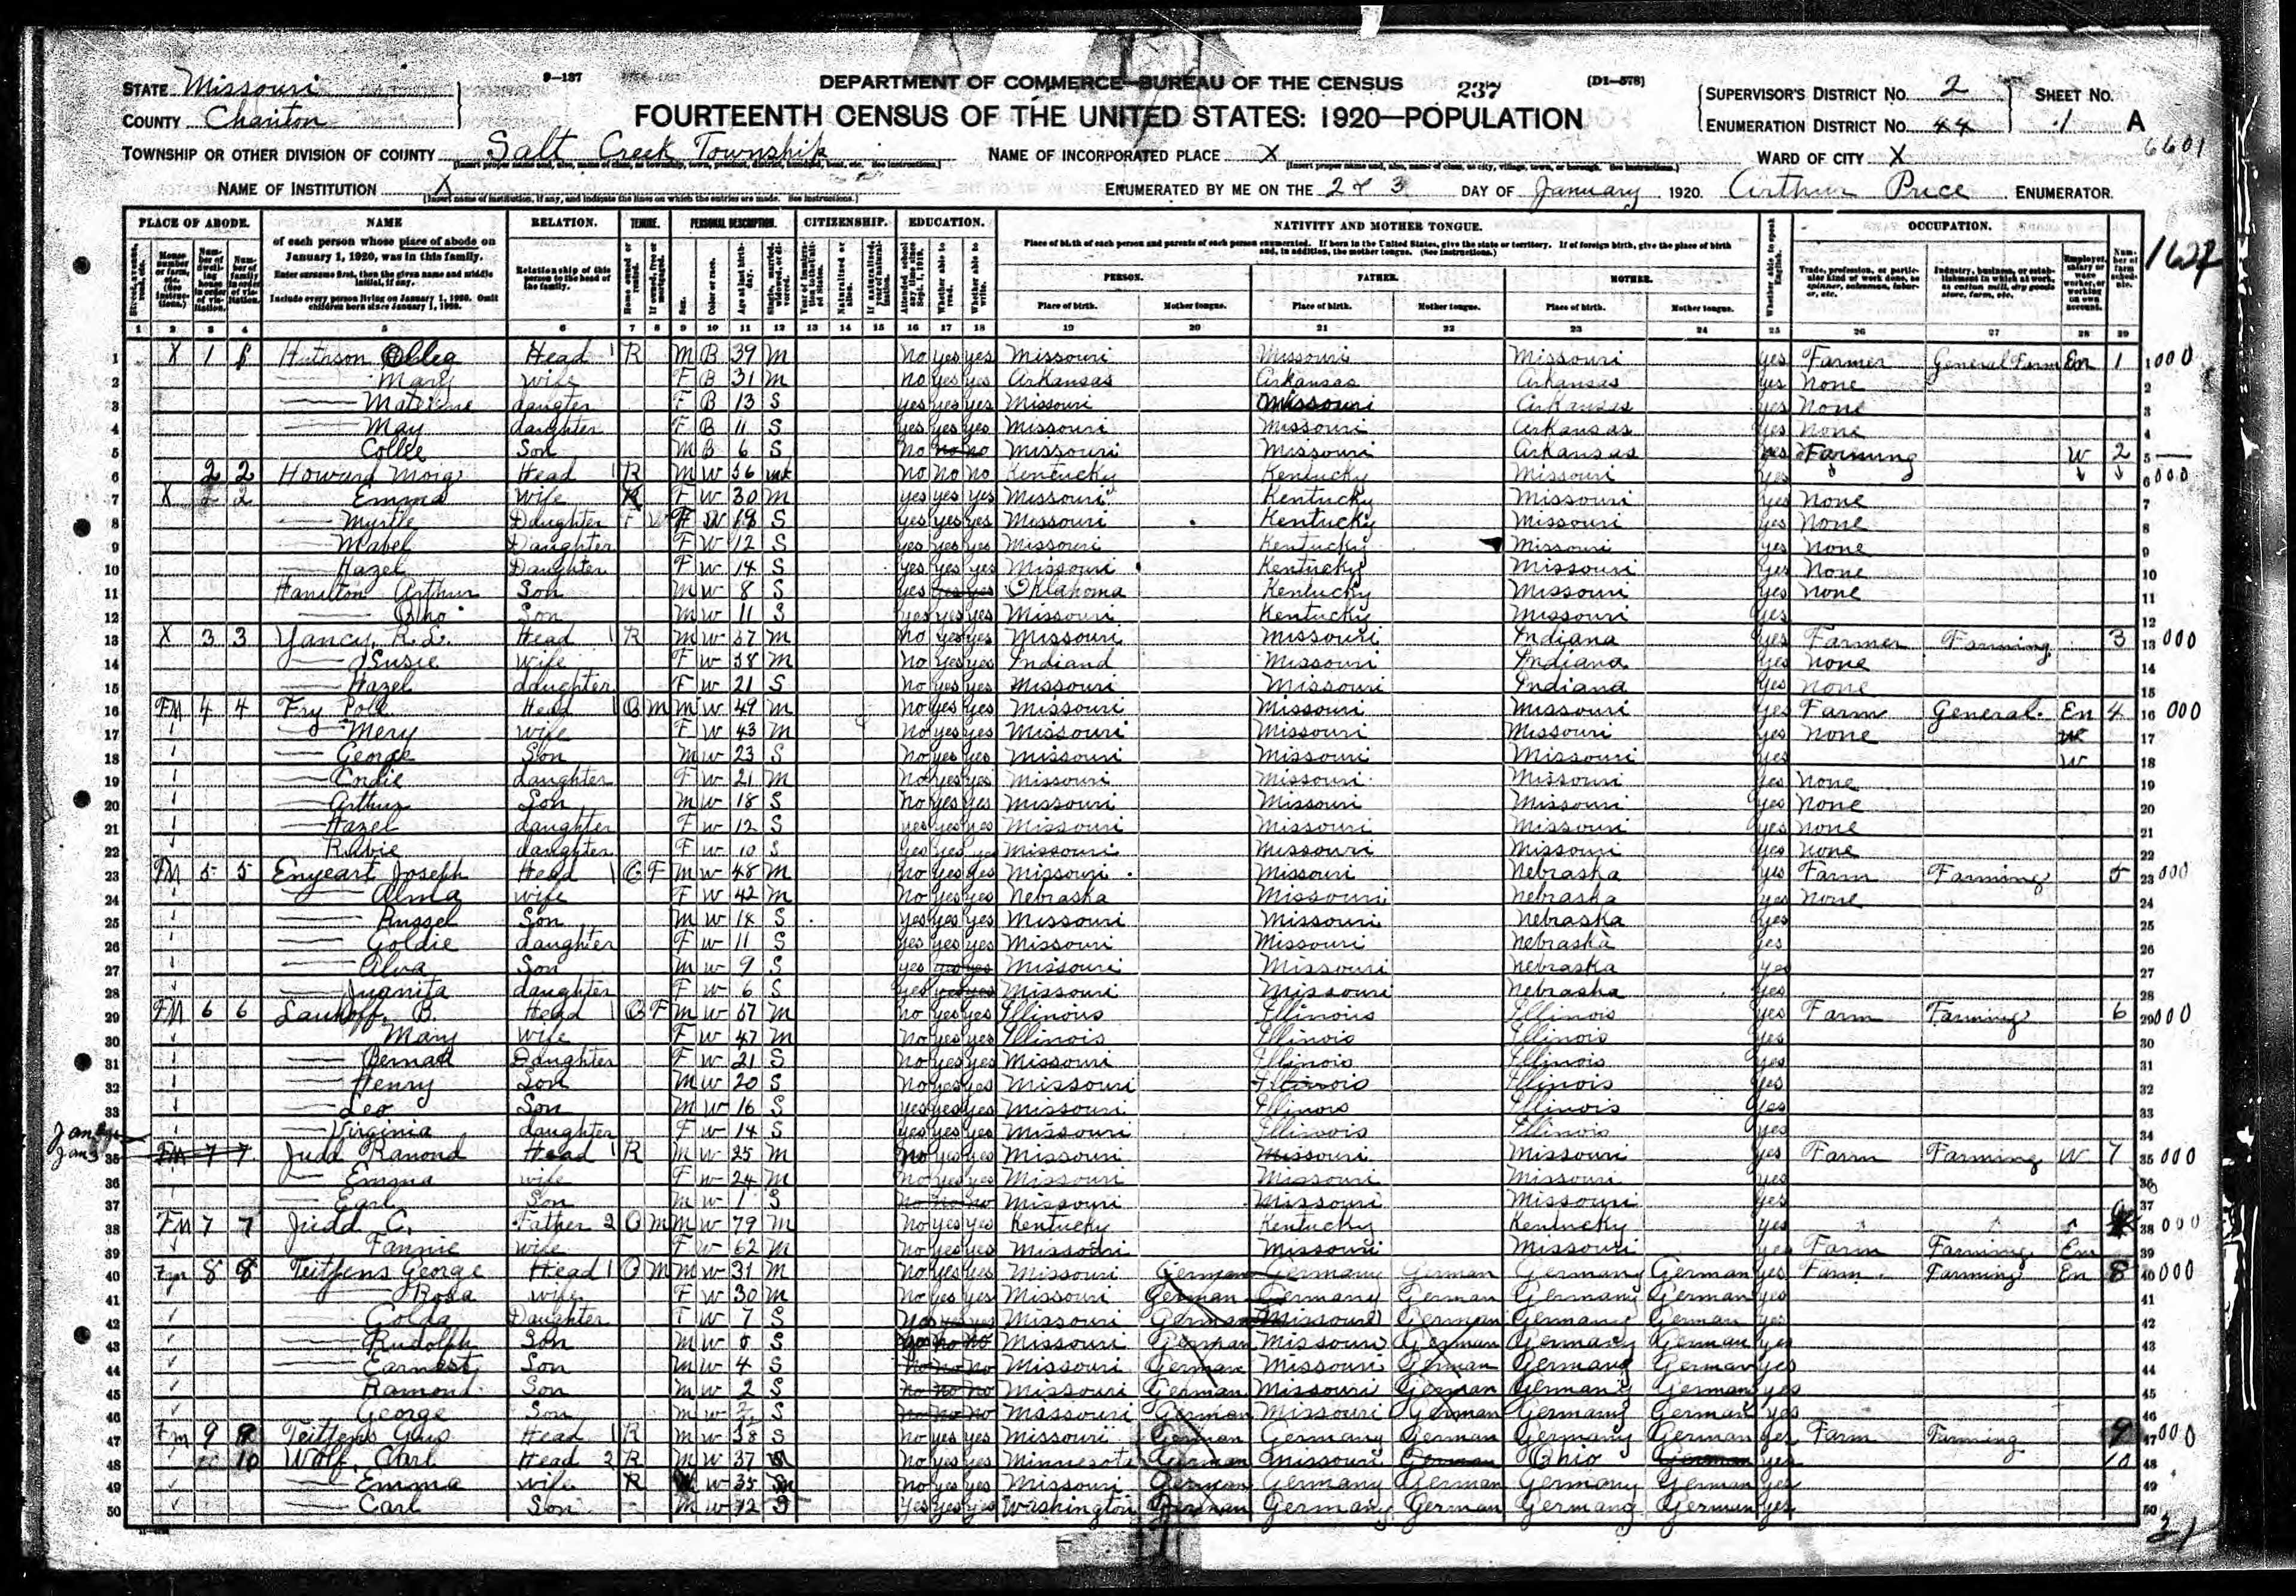 STATE Missouri 9-137 DEPARTMENT OF COMMERCE—BUREAU OF THE CENSUS 237 (D1-578) SUPERVISOR'S DISTRICT No. 2 SHEET No.
COUNTY Chariton FOURTEENTH CENSUS OF THE UNITED STATES: 1920—POPULATION ENUMERATION DISTRICT No. 44 1 A
6601
TOWNSHIP OR OTHER DIVISION OF COUNTY Salt Creek Township NAME OF INCORPORATED PLACE X WARD OF CITY X
NAME OF INSTITUTION X ENUMERATED BY ME ON THE 2 & 3 DAY OF January 1920. Arthur Price ENUMERATOR.
PLACE OF ABODE. NAME RELATION. TENURE. PERSONAL DESCRIPTION. CITIZENSHIP. EDUCATION. NATIVITY AND MOTHER TONGUE. OCCUPATION.
of each person whose place of abode on January 1, 1920, was in this family.
Enter surname first, then the given name and middle initial, if any.
Include every person living on January 1, 1920. Omit children born since January 1, 1920.
Relationship of this person to the head of the family.
Place of birth of each person and parents of each person enumerated. If born in the United States, give the state or territory. If of foreign birth, give the place of birth and, in addition, the mother tongue. (See Instructions.)
PERSON. FATHER. MOTHER.
Place of birth. Mother tongue. Place of birth. Mother tongue. Place of birth. Mother tongue.
1 2 3 4 5 6 7 8 9 10 11 12 13 14 15 16 17 18 19 20 21 22 23 24 25 26 27 28 29
1 X 1 Head 1 R M B 39 M no yes yes Missouri Missouri Missouri yes Farmer General Farm Em 1 1 000
2 Mary wife F B 31 M no yes yes Arkansas Arkansas Arkansas yes None 2
3 daugter F B 13 S yes yes yes Missouri Missouri Arkansas yes None 3
4 May daughter F B 11 S yes yes yes Missouri Missouri Arkansas yes None 4
5 Collee Son M B 6 S no no no Missouri Missouri Arkansas yes Farming W 2 5
6 2 2 Howard Head 1 R M W 56 no no no Kentucky Kentucky Missouri yes 6 000
7 X 2 2 Emma Wife R F W 30 M yes yes yes Missouri Kentucky Missouri yes None 7
8 Myrtle Daughter F W S yes yes yes Missouri Kentucky Missouri yes None 8
9 Mabel Daughter F W 12 S yes yes yes Missouri Kentucky Missouri yes None 9
10 Hazel Daughter F W 14 S yes yes yes Missouri Kentucky Missouri yes None 10
11 Hamilton Arthur Son M W 8 S yes yes yes Oklahoma Kentucky Missouri yes None 11
12 Son M W 11 S yes yes yes Missouri Kentucky Missouri yes 12
13 X 3 3 Yancy, R. L. Head 1 R M W 57 M no yes yes Missouri Missouri Indiana yes Farmer Farming 3 13 000
14 Susie wife F W 58 M no yes yes Indiana Missouri Indiana yes None 14
15 Hazel daughter F W 21 S no yes yes Missouri Missouri Indiana yes None 15
16 FM 4 4 Fry Head 1 O M M W 49 M no yes yes Missouri Missouri Missouri yes Farm General Em 4 16 000
17 Mery wife F W 43 M no yes yes Missouri Missouri Missouri yes None W 17
18 George Son M W 23 S no yes yes Missouri Missouri Missouri yes W 18
19 daughter F W 21 M no yes yes Missouri Missouri Missouri yes None 19
20 Arthur Son M W 18 S no yes yes Missouri Missouri Missouri yes None 20
21 Hazel daughter F W 12 S yes yes yes Missouri Missouri Missouri yes None 21
22 Rubie daughter F W 10 S yes yes yes Missouri Missouri Missouri yes None 22
23 FM 5 5 Enyeart Joseph Head 1 O F M W 48 M no yes yes Missouri Missouri Nebraska yes Farm Farming 5 23 000
24 Alma wife F W 42 M no yes yes Nebraska Missouri Nebraska yes None 24
25 Russel Son M W S yes yes yes Missouri Missouri Nebraska yes 25
26 Goldie daughter F W 11 S yes yes yes Missouri Missouri Nebraska yes 26
27 Alva Son M W 9 S yes yes yes Missouri Missouri Nebraska yes 27
28 Juanita daughter F W 6 S yes yes yes Missouri Missouri Nebraska yes 28
29 FM 6 6 B. Head 1 O F M W 57 M no yes yes Illinois Illinois Illinois yes Farm Farming 6 29 000
30 Mary wife F W 47 M no yes yes Illinois Illinois Illinois yes 30
31 Daughter F W 21 S no yes yes Missouri Illinois Illinois yes 31
32 Henry Son M W 20 S no yes yes Missouri Illinois Illinois yes 32
33 Leo Son M W 16 S yes yes yes Missouri Illinois Illinois yes 33
34 Virginia daughter F W 14 S yes yes yes Missouri Illinois Illinois yes 34
35 FM 7 7 Judd Ramond Head 1 R M W 25 M no yes yes Missouri Missouri Missouri yes Farm Farming W 7 35 000
36 Emma wife F W 24 M no yes yes Missouri Missouri Missouri yes 36
37 Earl Son M W 1 S no no no Missouri Missouri Missouri yes 37
38 FM 7 7 Judd C. Father 2 O M M W 79 M no yes yes Kentucky Kentucky Kentucky yes 38 000
39 Fannie wife F W 62 M no yes yes Missouri Missouri Missouri yes Farm Farming Em 39
40 Fm 8 8 Teitjens George Head 1 O M M W 31 M no yes yes Missouri German Germany German Germany German yes Farm Farming Em 8 40 000
41 Rosa wife F W 30 M no yes yes Missouri German Germany German Germany German yes 41
42 Golda Daughter F W 7 S yes yes yes Missouri German Missouri German Germany German yes 42
43 Rudolph Son M W S no no no Missouri German Missouri German Germany German yes 43
44 Earnest Son M W 4 S no no no Missouri German Missouri German Germany German yes 44
45 Ramond Son M W 2 S no no no Missouri German Missouri German Germany German yes 45
46 George Son M W S no no no Missouri German Missouri German Germany German yes 46
47 Fm 9 9 Teitjens Gus Head 1 R M W 38 S no yes yes Missouri German Germany German Germany German yes Farm Farming 9 47 000
48 10 Wolf, Carl Head 2 R M W 37 M no yes yes Minnesota German Missouri German Ohio German yes 10 48
49 Emma wife R W 35 M no yes yes Missouri German Germany German Germany German yes 49
50 Carl Son M W 12 S yes yes yes Washington German Germany German Germany German yes 50